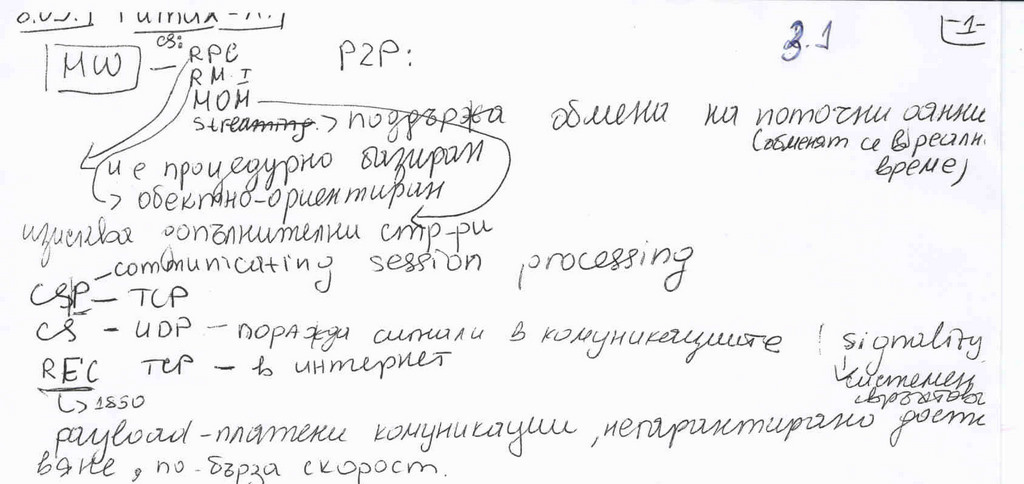 3.1 -1-
CS:
MW — RPC P2P:
RMI
MOM
streaming -> поддържа обмена на поточни данни
(обменят се в реалн.
време)
и е процедурно базиран
-> обектно-ориентиран
изисква допълнителни стр-ри
communicating session processing
CSP — TCP
CS — UDP — поражда сигнали в комуникациите ! signality
REC TCP — в интернет
системен
-> 1850
payload - платени комуникации, негарантирано дости
ване, по-бърза скорост.